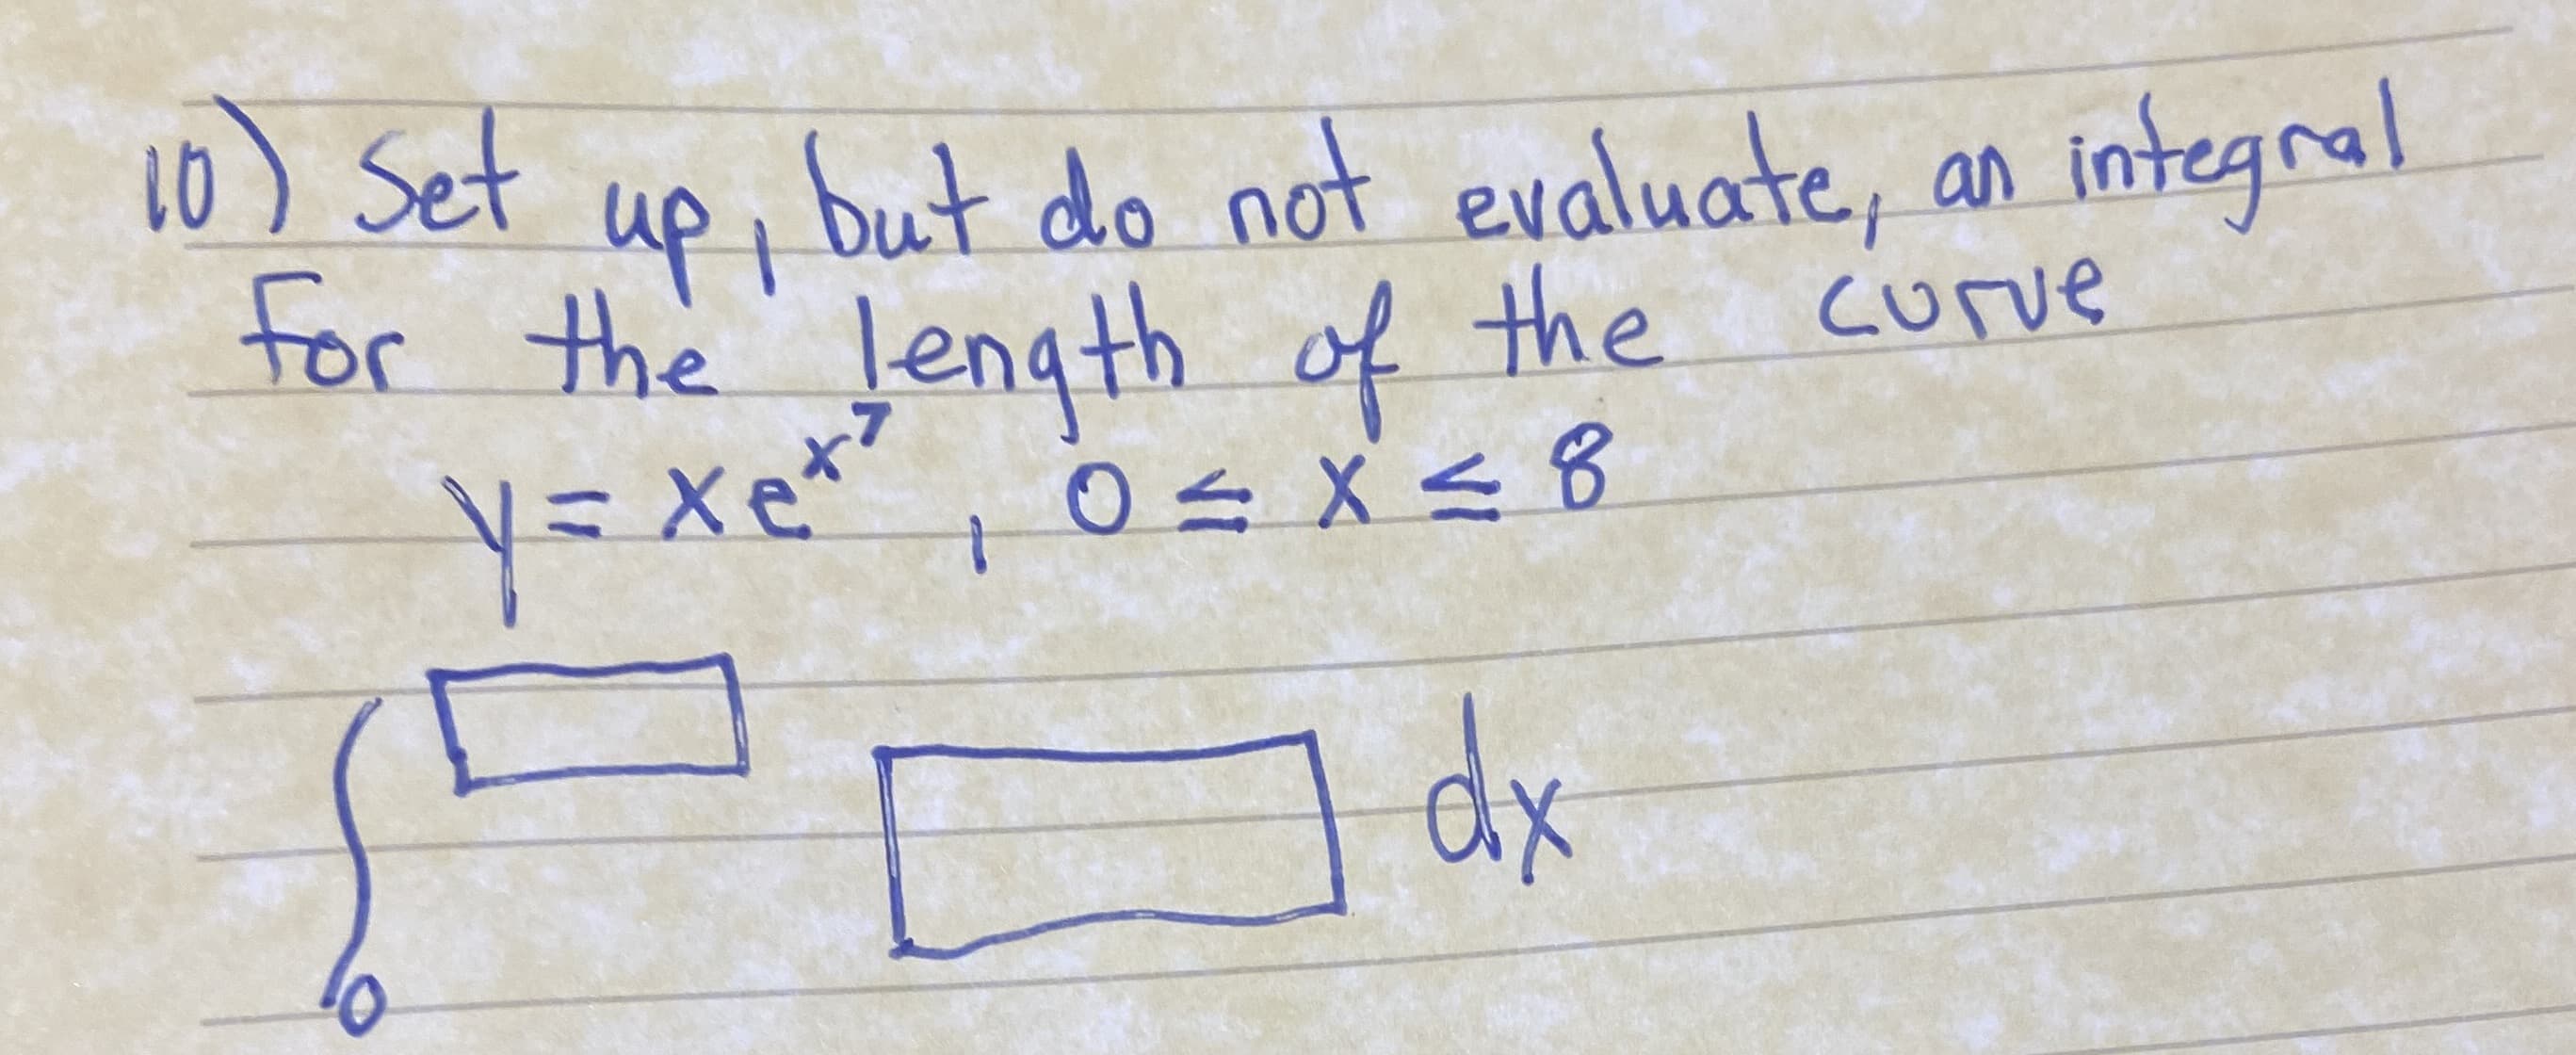 10) Set up, but do not evaluate, an integral
for the length of the curve
y = xe^{x^7}, 0 ≤ x ≤ 8
∫_0^□ □ dx